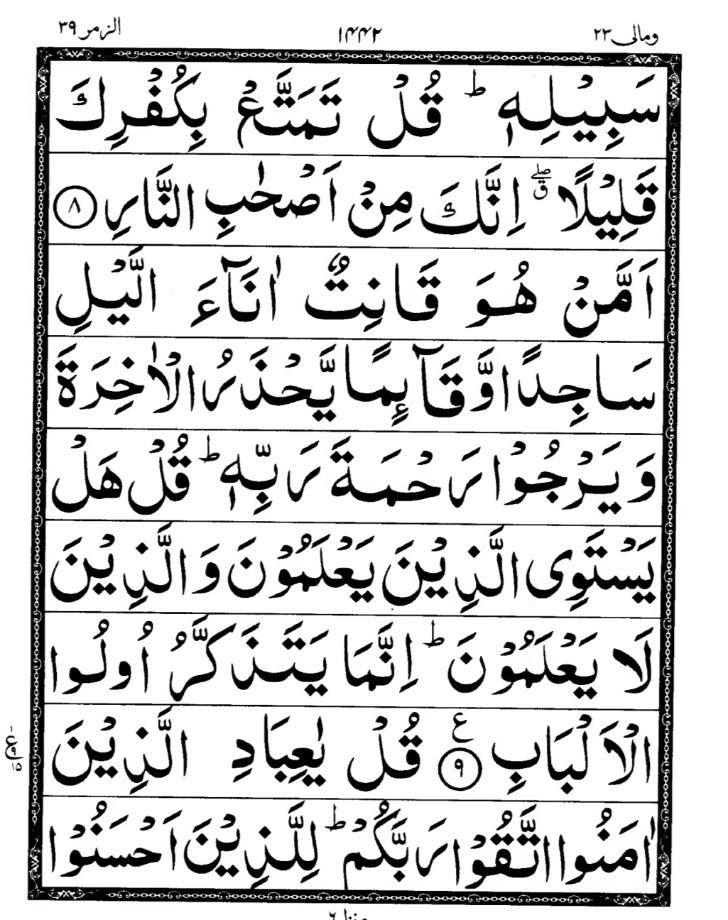 ومالی ٢٣ ١٤٤٢ الزمر ٣٩
سَبِيْلِهٖ ؕ قُلْ تَمَتَّعْ بِكُفْرِكَ
قَلِيْلًا ۖۗ اِنَّكَ مِنْ اَصْحٰبِ النَّارِ ٨
اَمَّنْ هُوَ قَانِتٌ اٰنَآءَ الَّيْلِ
سَاجِدًا وَّقَآىِٕمًا يَّحْذَرُ الْاٰخِرَةَ
وَيَرْجُوْا رَحْمَةَ رَبِّهٖ ؕ قُلْ هَلْ
يَسْتَوِى الَّذِيْنَ يَعْلَمُوْنَ وَالَّذِيْنَ
لَا يَعْلَمُوْنَ ؕ اِنَّمَا يَتَذَكَّرُ اُولُوا
الْاَلْبَابِ ٩ ع قُلْ يٰعِبَادِ الَّذِيْنَ
اٰمَنُوا اتَّقُوْا رَبَّكُمْ ؕ لِلَّذِيْنَ اَحْسَنُوْا
منزل ٦